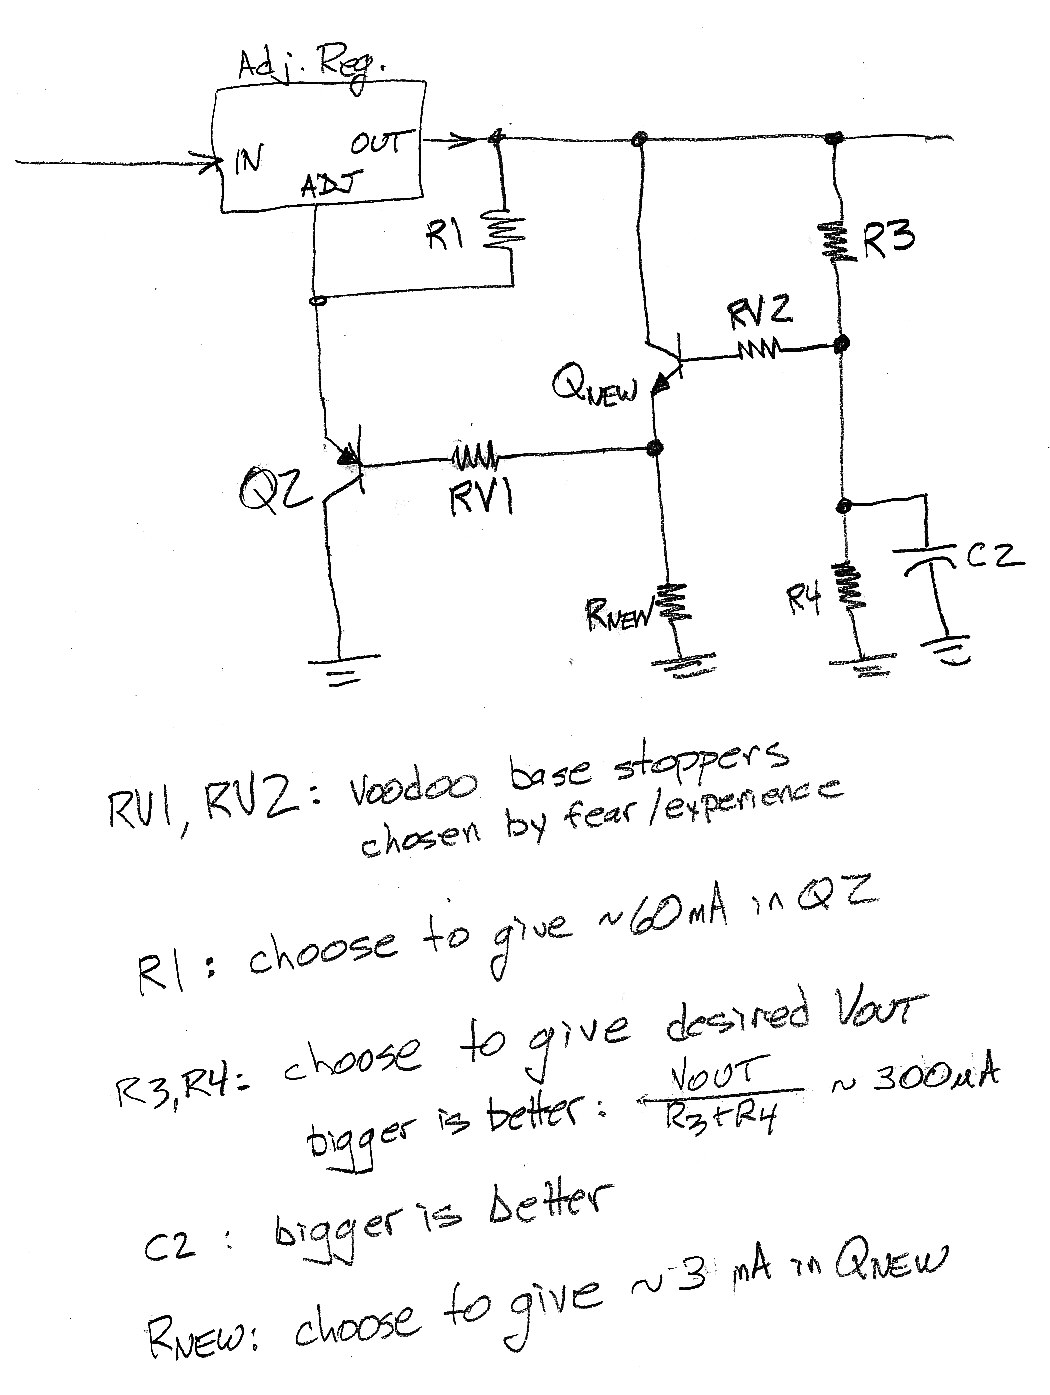 Adj. Reg.
IN
OUT
ADJ
R1
R3
RV2
QNEW
Q2
RV1
RNEW
R4
C2
RV1, RV2: voodoo base stoppers
chosen by fear/experience
R1: choose to give ~60mA in Q2
R3,R4: choose to give desired VOUT
bigger is better: VOUT / R3+R4 ~ 300µA
C2: bigger is better
RNEW: choose to give ~3 mA in QNEW